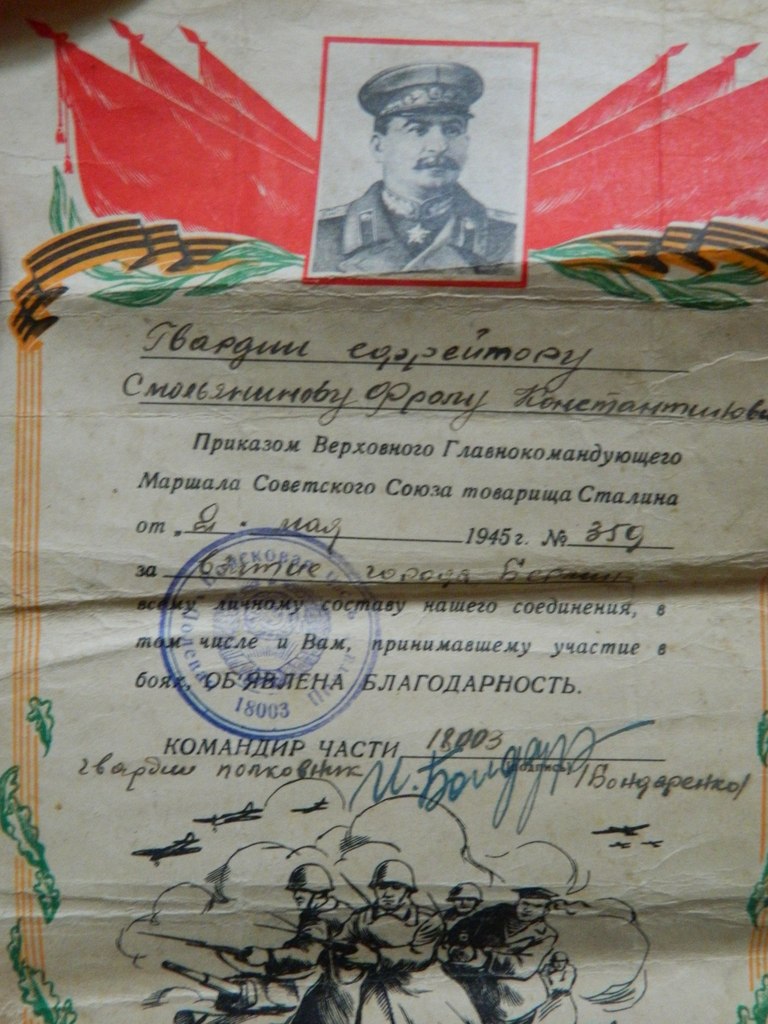 Гвардии ефрейтору
Смольянинову Фролу Константинови
Приказом Верховного Главнокомандующего
Маршала Советского Союза товарища Сталина
от „2" мая 1945 г. № 359
за взятие города Берлин
всему личному составу нашего соединения, в
том числе и Вам, принимавшему участие в
боях, ОБ'ЯВЛЕНА БЛАГОДАРНОСТЬ.
18003
КОМАНДИР ЧАСТИ 18003
гвардии полковник И. Бондар (подпись) /Бондаренко/